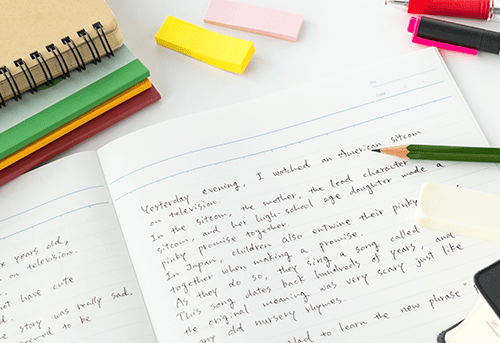 No.
Date
Yesterday evening, I watched an American sitcom
on television.
In the sitcom, the mother, the lead character
sitcom, and her high-school age daughter made a
pinky promise together.
In Japan, children also entwine their pinky
together when making a promise.
As they do so, they sing a song called
and
This song dates back hundreds of years,
the original meaning was very scary just like
any old nursery rhymes.
glad to learn the new phrase "
years old,
on television.
but have cute
story was really sad.
to be